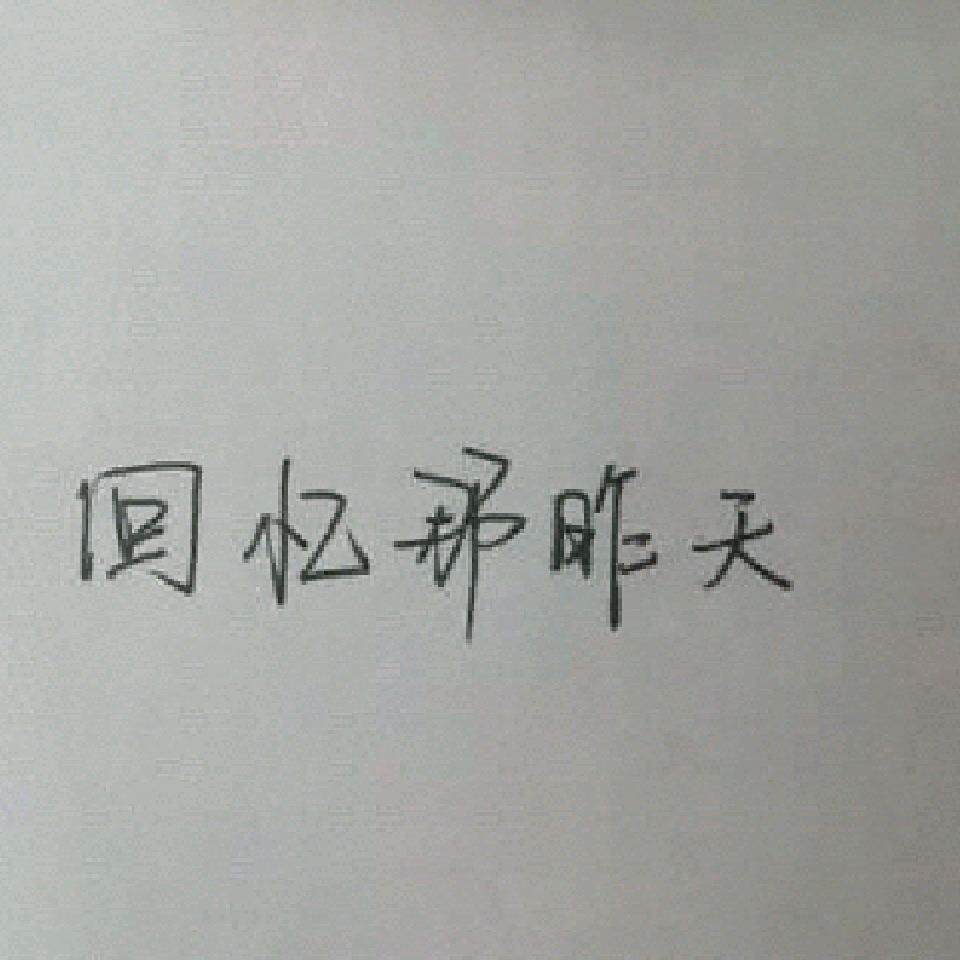 回忆那昨天